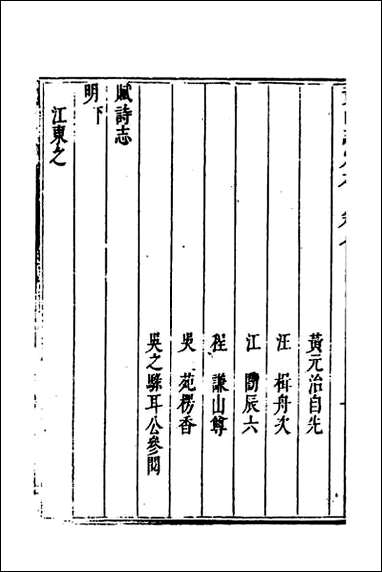 黃元治自先
汪 楫舟次
江 闓辰六
程 謙山尊
吳 苑楞香
吳之騄耳公參閱
賦詩志
明下
江東之